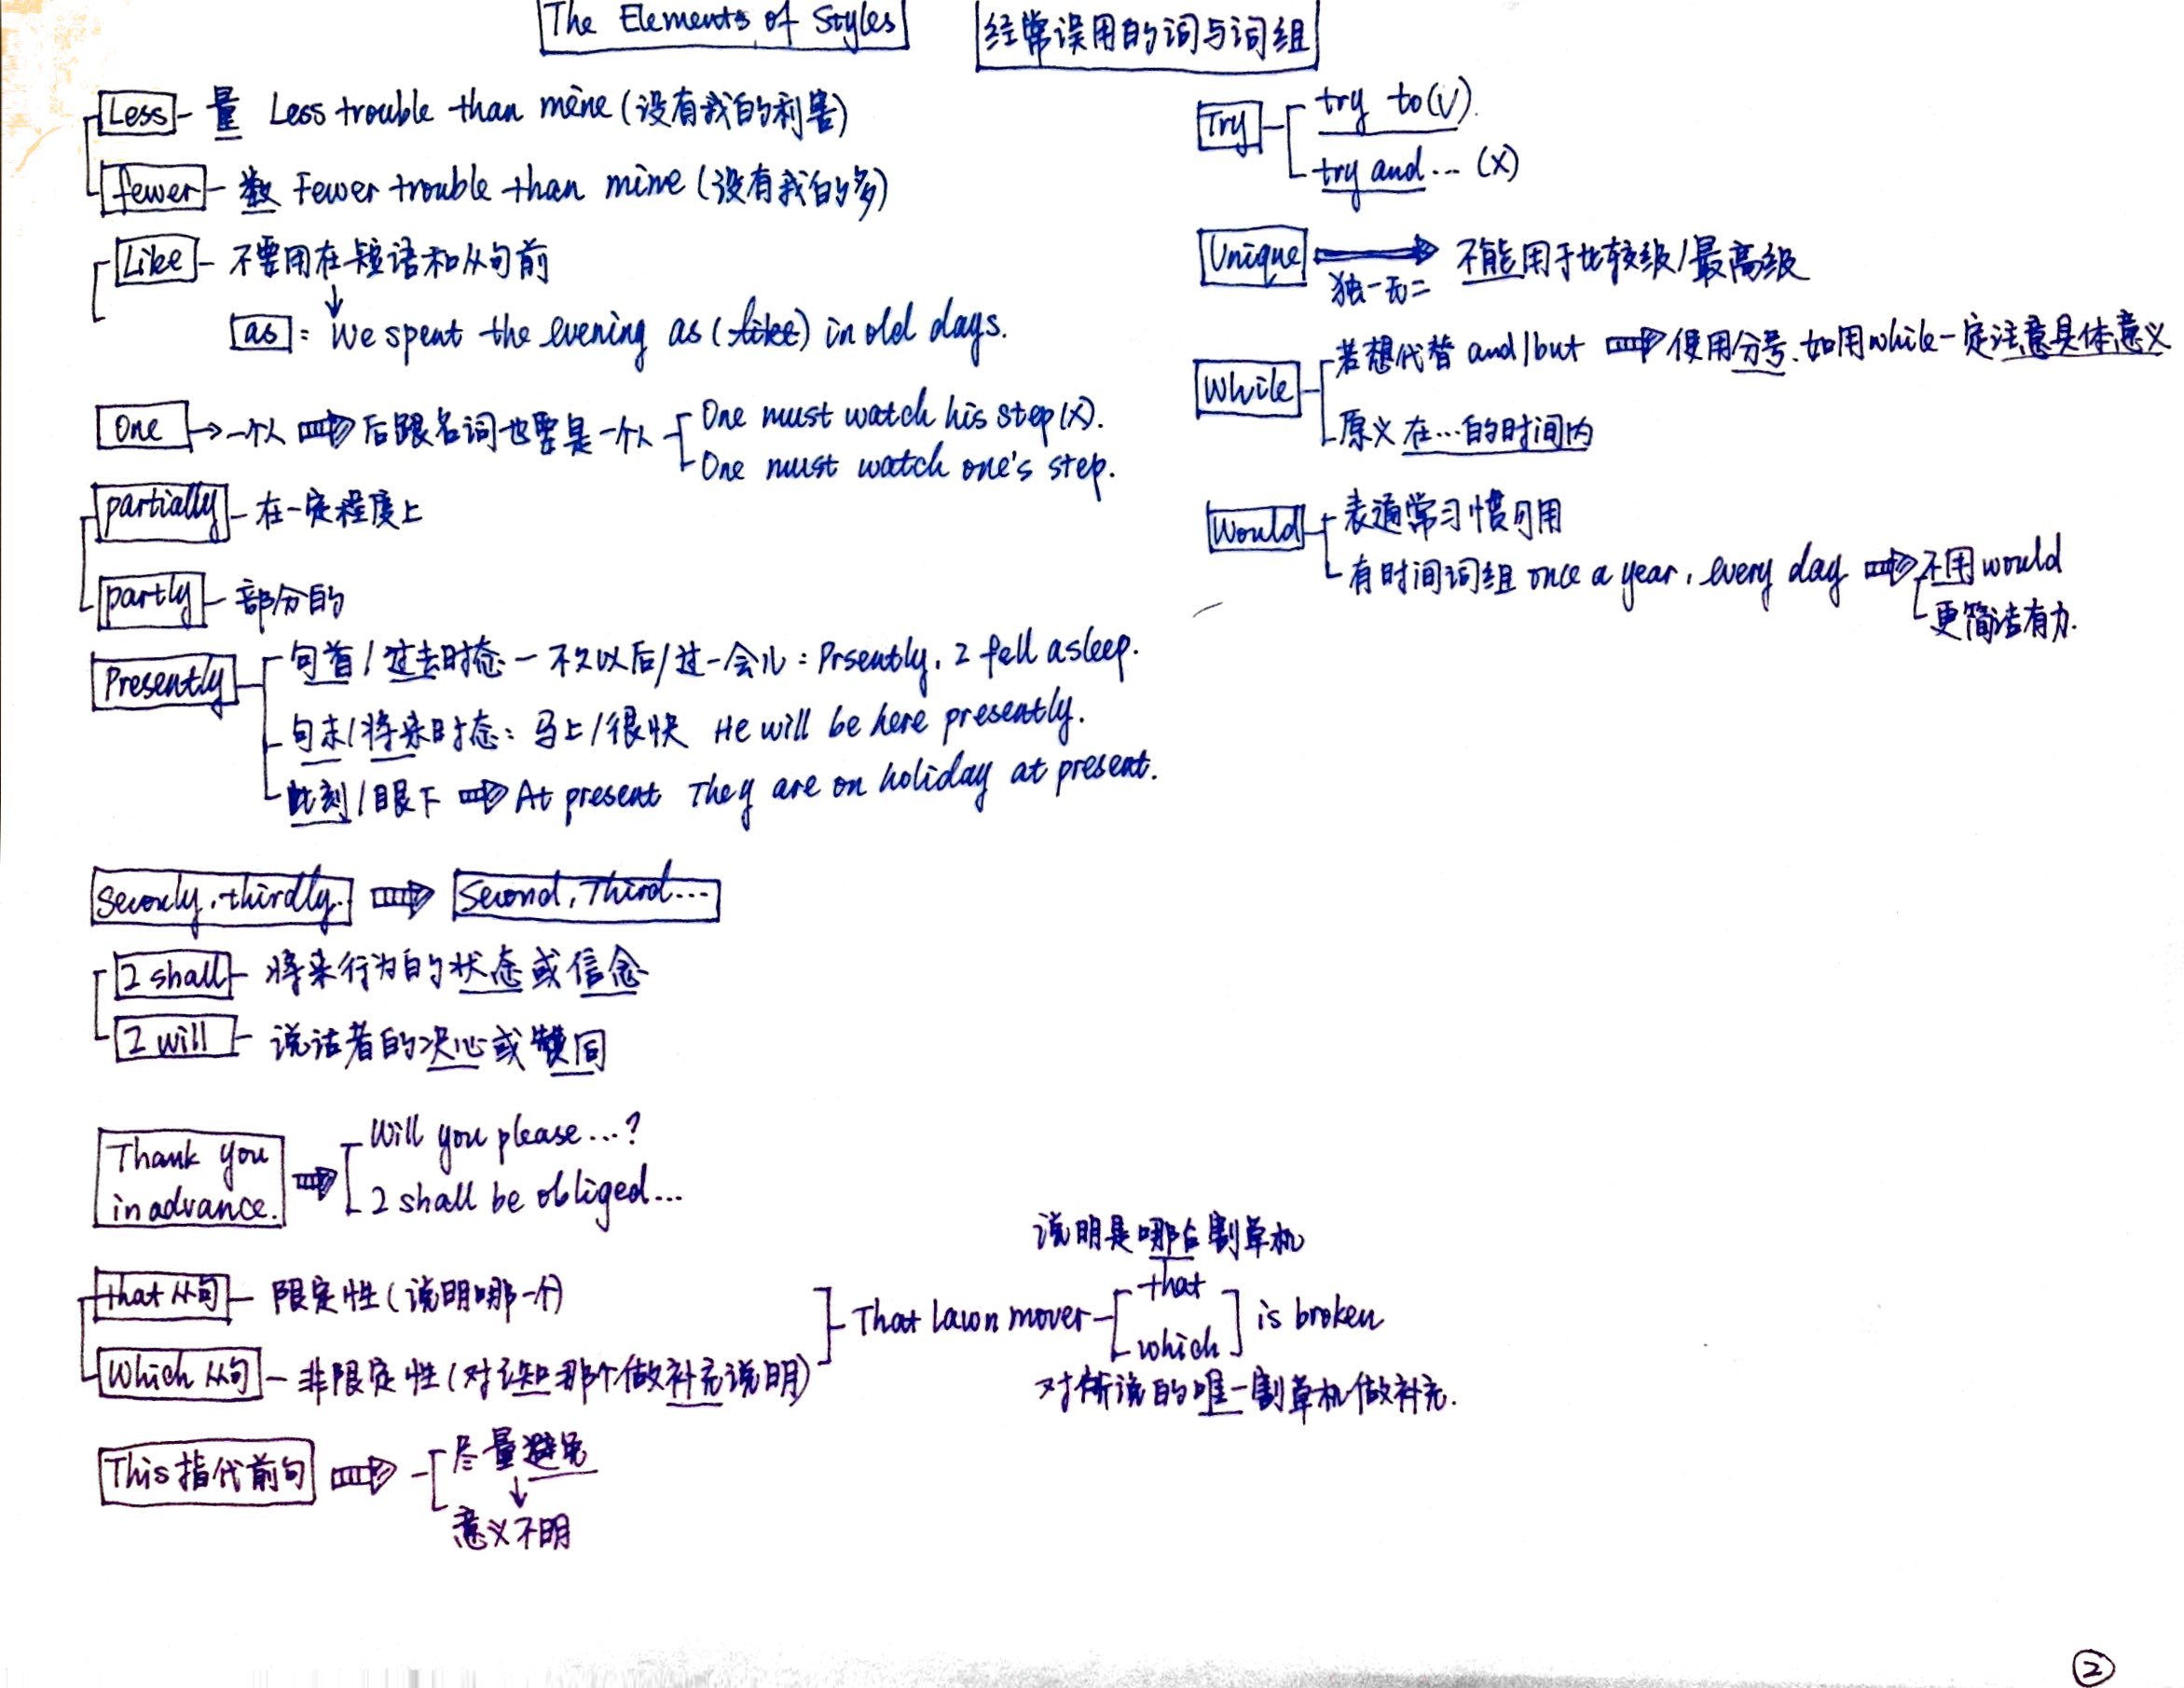 The Elements of Styles
经常误用的词与词组
Less - 量 Less trouble than mine (没有我的利害)
fewer - 数 Fewer trouble than mine (没有我的多)
Like - 不要用在短语和从句前
as : We spent the evening as (like) in old days.
One → 一个人 后跟名词也要是一个人
One must watch his step (X).
One must watch one's step.
partially - 在一定程度上
partly - 部分的
Presently
句首 / 过去时态 - 不久以后 / 过一会儿 : Prsently, I fell asleep.
句末 / 将来时态 : 马上 / 很快 He will be here presently.
此刻 / 眼下 At present They are on holiday at present.
Seconly, thirdly. Second, Third...
I shall - 将来行为的状态或信念
I will - 说话者的决心或赞同
Thank you
in advance.
Will you please...?
I shall be obliged...
that 从句 - 限定性 (说明哪一个)
Which 从句 - 非限定性 (对已知那个做补充说明)
说明是哪台割草机
That lawn mover
that
which
is broken
对所说的唯一割草机做补充.
This 指代前句
尽量避免
↓
意义不明
Try
try to (√).
try and ... (X)
Unique 不能用于比较级 / 最高级
独一无二
While
若想代替 and / but 使用分号. 如用 while 一定注意具体意义
原义 在...的时间内
Would
表通常习惯可用
有时间词组 once a year, every day 不用 would
更简洁有力.
2